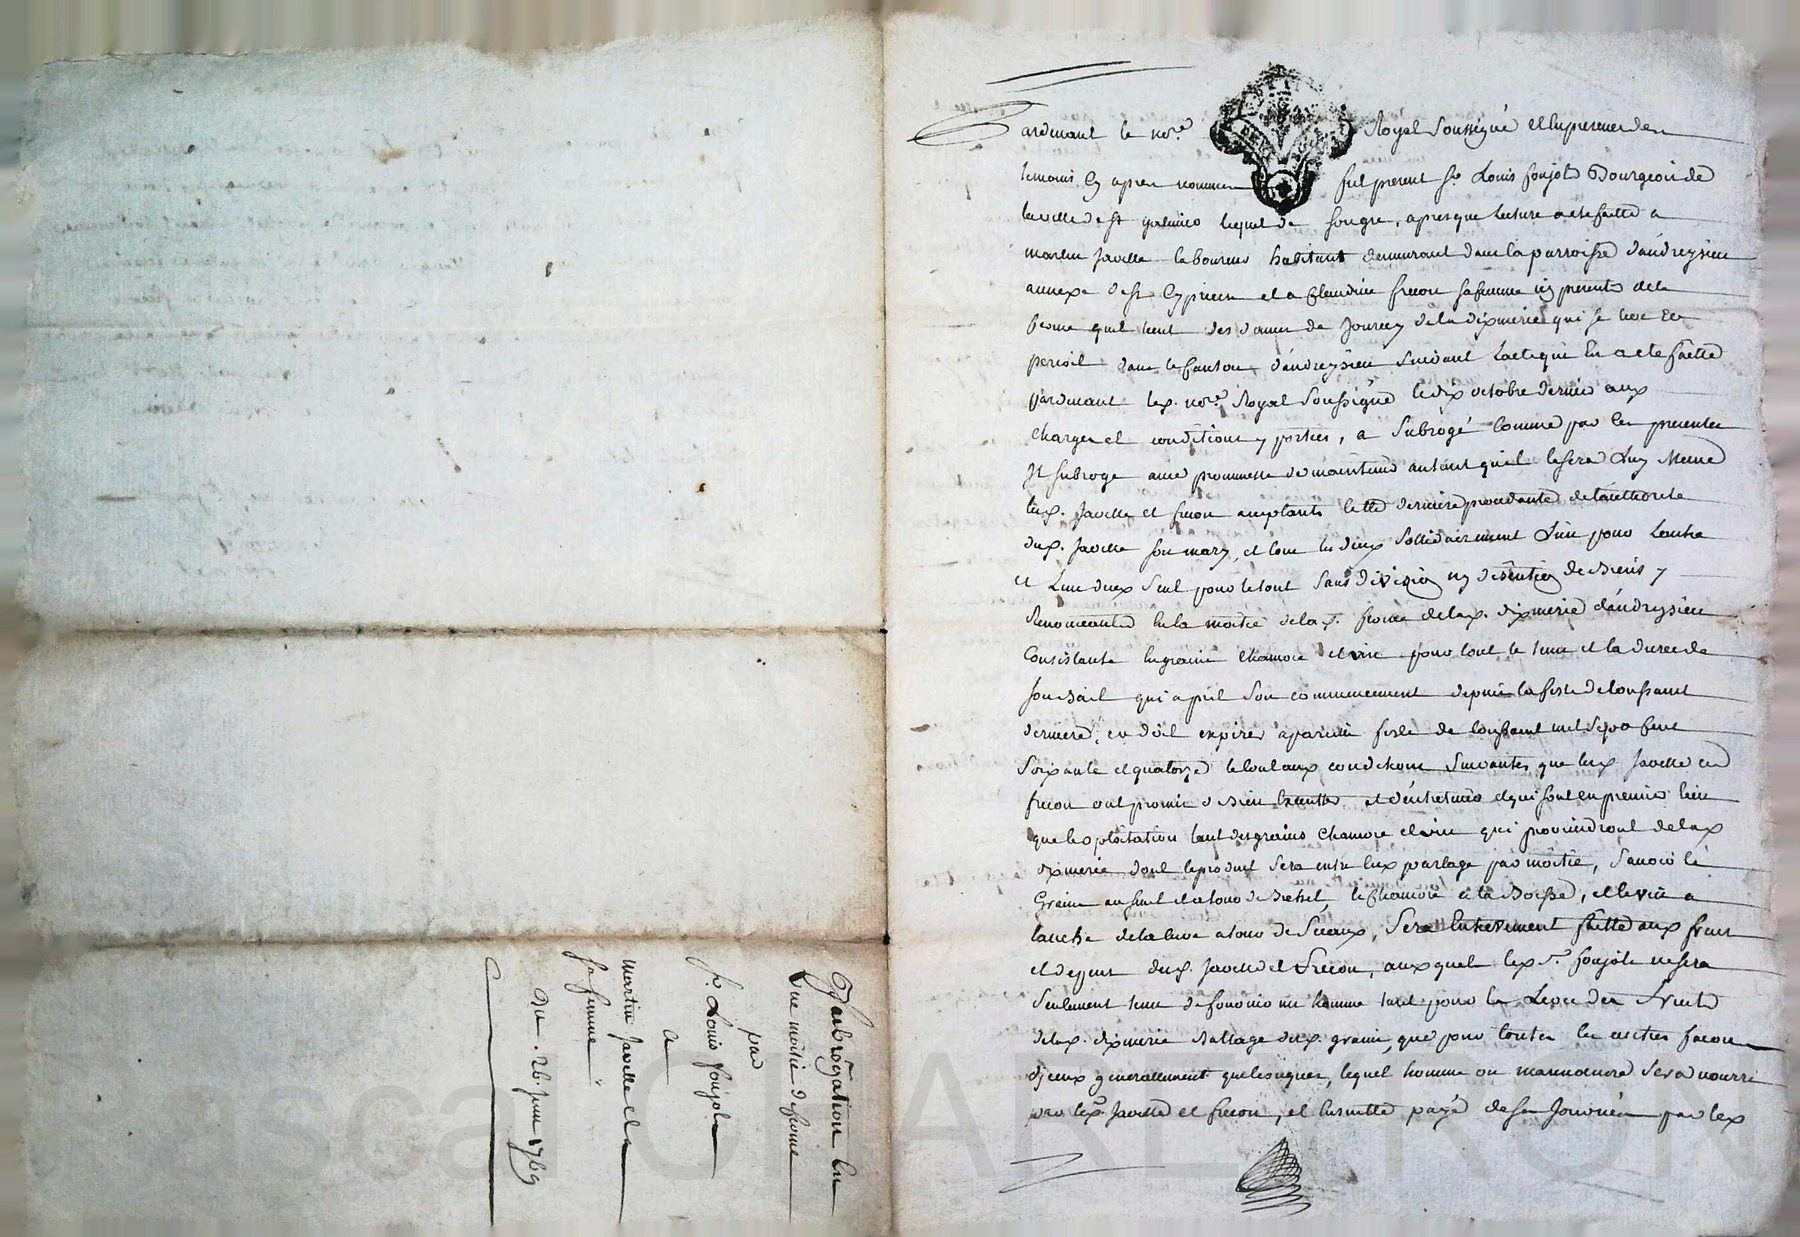 Subrogation en
une moitié de ferme
par
Sr. Louis Foujols
a
martin Javelle et a
sa femme
Du 26. juin 1769
Pardevant le nore. Royal soussigné et en presence des
temoins cy apres nommes fut present Sr. Louis foujols Bourgeois de
la ville de st galmier lequel de son gré, apres que lecture a été faitte a
martin Javelle laboureur habitant demeurant dans la parroisse d'andreysieu
annexe de st Cyprien et a Claudine frecon sa femme icy presents de la
ferme quil tient des dames de Jourcey de la dixmerie qui se leve et
perçoit dans le canton d'andreysieu suivant l'acte qui en a ete faitte
pardevant le x. nore. Royal soussigné le dix octobre dernier aux
charges et conditions y portees, a subrogé comme par les presentes
Il subroge avec promesse de maintenir autant quil le sera luy meme
les x. Javelle et frecon acceptants cette derniere procedante de l'authorite
du x. Javelle son mary, et tous les deux sollidairement l'un pour l'autre
et l'un deux seul pour le tout sans division ny discution de biens y
Renonceants en la moitié de la x. ferme de la x. dixmerie d'andreysieu
Consistante en grains chanvre et vin pour tout le tems et la durée de
son bail qui a pris son commencement depuis la feste de toussaint
derniere, et doit expirer a pareille feste de toussaint mil sept cent
soixante et quatorze le tout aux conditions suivantes que les x. Javelle et
frecon ont promis de bien executter et d'entretenir et qui sont en premier lieu
que l'exploitation tant des grains chanvre et vin qui proviendront de la x
dixmerie dont le produit sera entre eux partagé par moitié, sçavoir le
Grain au sueil et a tour de Bichet, le chanvre a la Boisse, et le vin a
l'anche de la cuve a tour de Seaux, sera entierement faitte aux frais
et depens des x. Javelle et frecon, auxquels le x Sr. foujols ne sera
seulement tenu de fournir un homme tant pour la Levée des fruits
de la x. dixmerie Battage des x. grains, que pour toutes les autres façons
djceux generallement quelconques, lequel homme ou manoeuvre sera nourri
par les x Javelle et frecon, et ensuitte payé de ses journées par le x